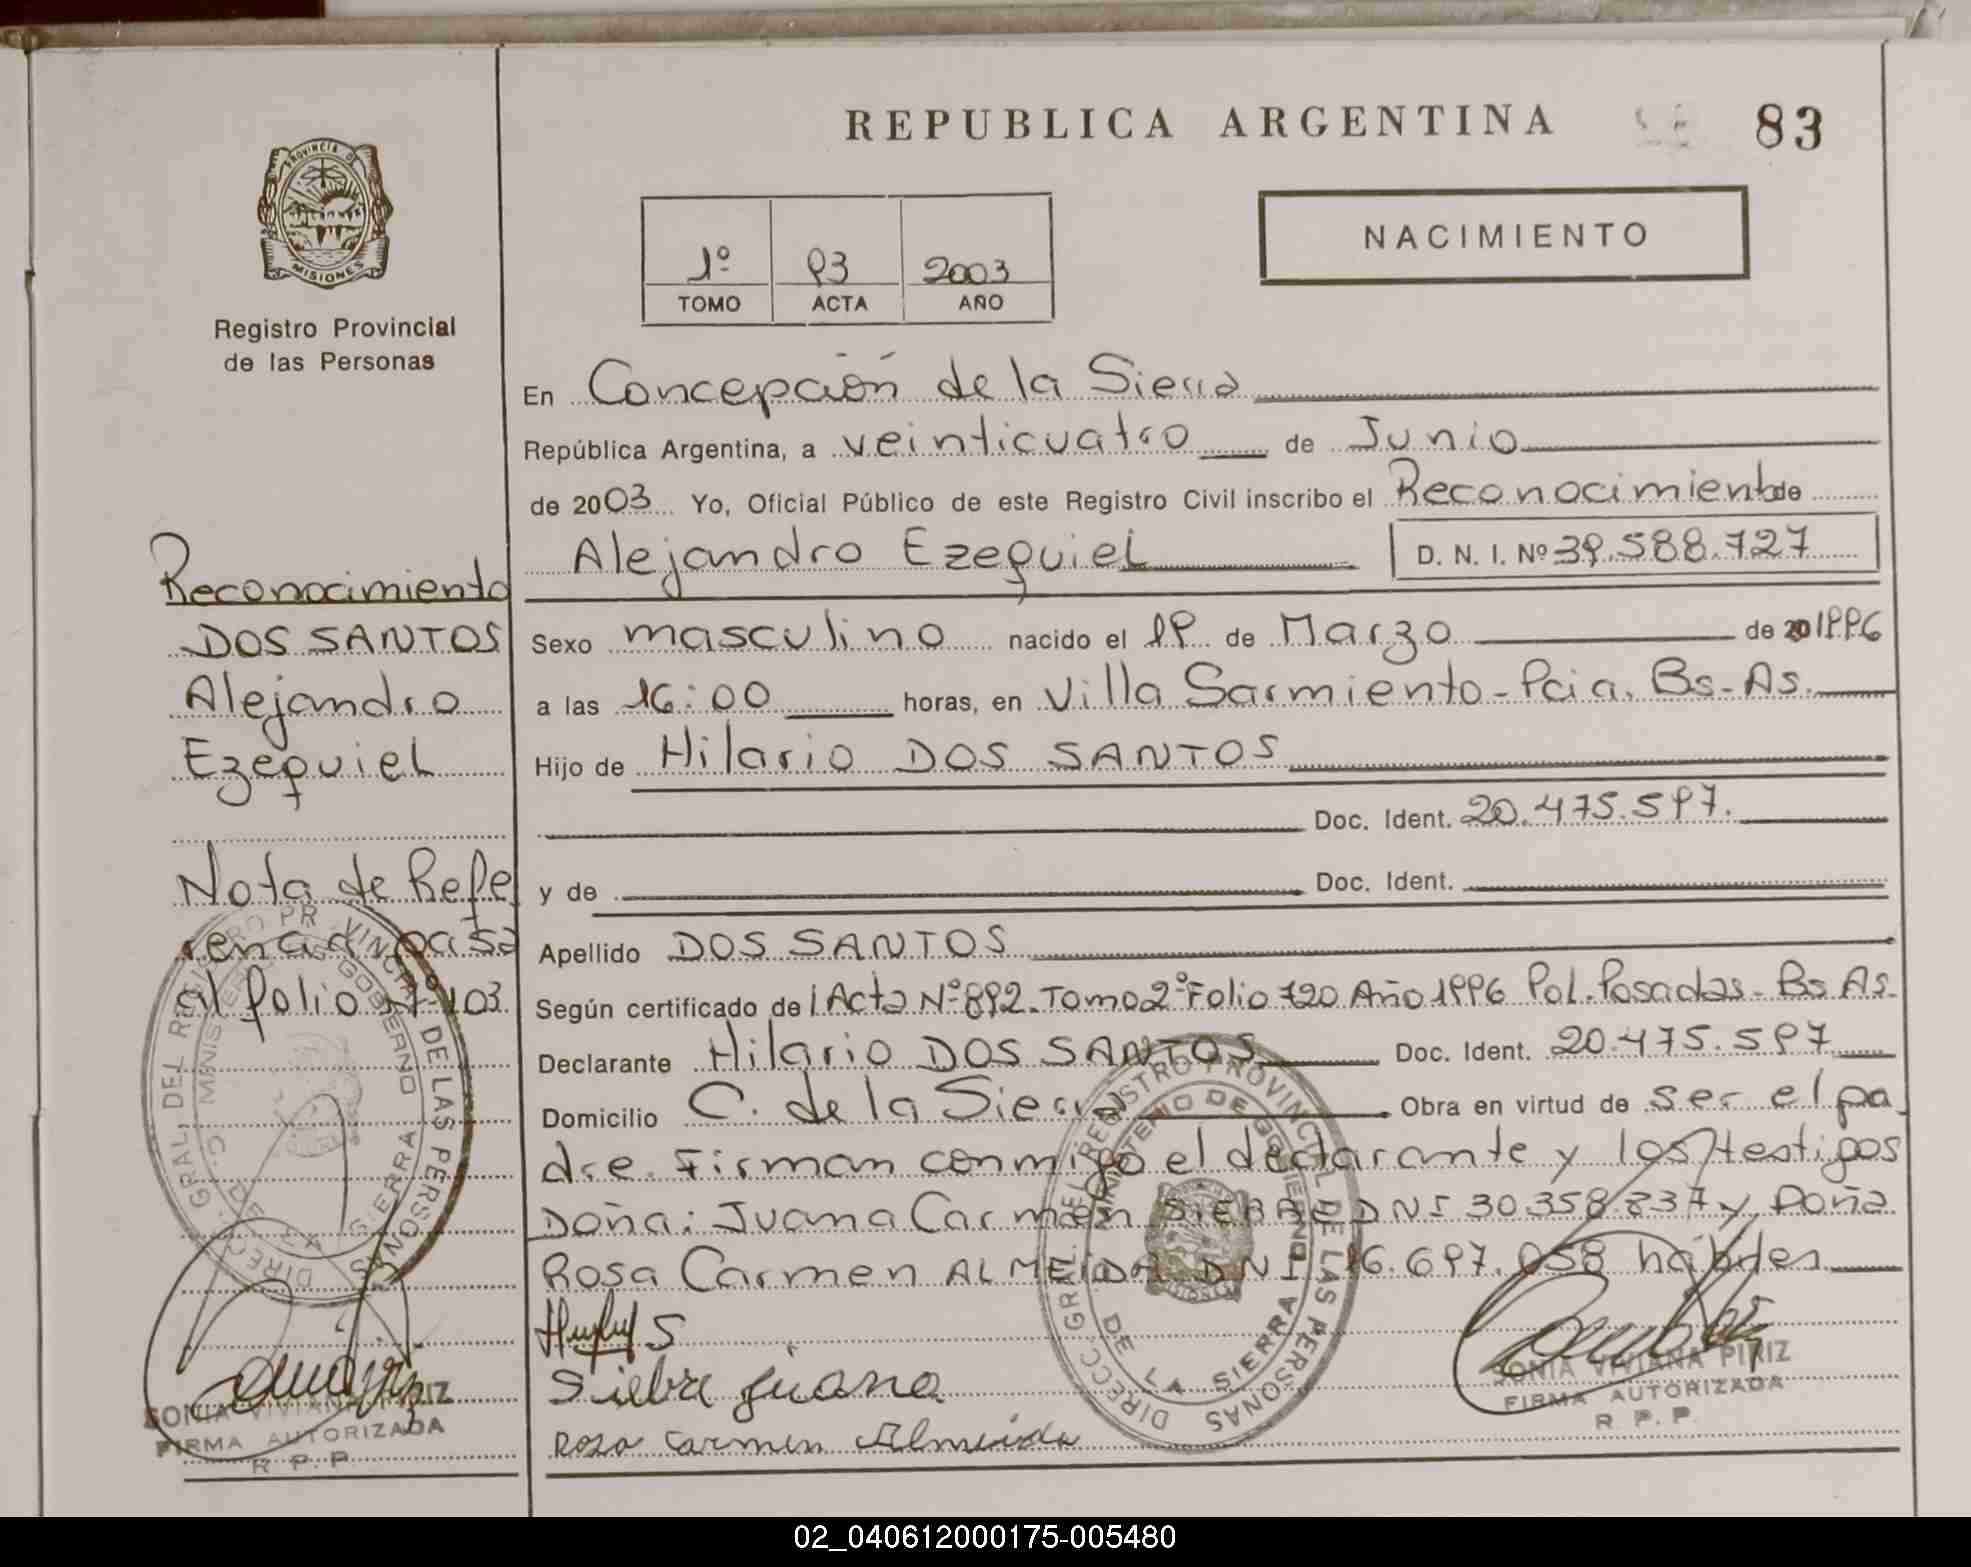 REPUBLICA ARGENTINA
83
PROVINCIA DE
MISIONES
Registro Provincial
de las Personas
1º 93 2003
TOMO ACTA AÑO
NACIMIENTO
En Concepción de la Sierra
República Argentina, a veinticuatro de Junio
de 2003 Yo, Oficial Público de este Registro Civil inscribo el Reconocimiento de
Alejandro Ezequiel D. N. I. Nº 39.588.727
Sexo masculino nacido el 19 de Marzo de 1996
a las 16:00 horas, en Villa Sarmiento - Pcia. Bs-As.
Hijo de Hilario DOS SANTOS
Doc. Ident. 20.475.597.
y de Doc. Ident.
Apellido DOS SANTOS
Según certificado de Acta Nº 892. Tomo 2º Folio 720 Año 1996 Pol. Posadas - Bs As.
Declarante Hilario DOS SANTOS Doc. Ident. 20.475.597
Domicilio C. de la Sierra Obra en virtud de ser el pa
dre. Firman conmigo el declarante y los testigos
Doña: Juana Carmen DNI 30.358.237 y Doña
Rosa Carmen ALMEIDA DNI 16.697.058 hábiles
Siebre Juana
Rosa Carmen Almeida
SONIA VIVIANA PIRIZ
FIRMA AUTORIZADA
R. P. P.
Reconocimiento
DOS SANTOS
Alejandro
Ezequiel
Nota de Refe
rencia pasa
al folio Nº 103
SONIA VIVIANA PIRIZ
FIRMA AUTORIZADA
R. P. P.
DIRECC. GRAL. DEL REGISTRO PROVINCIAL DE LAS PERSONAS
MINISTERIO DE GOBIERNO
C. DE LA SIERRA
DIRECC. GRAL. DEL REGISTRO PROVINCIAL DE LAS PERSONAS
MINISTERIO DE GOBIERNO
DE LA SIERRA
02_040612000175-005480